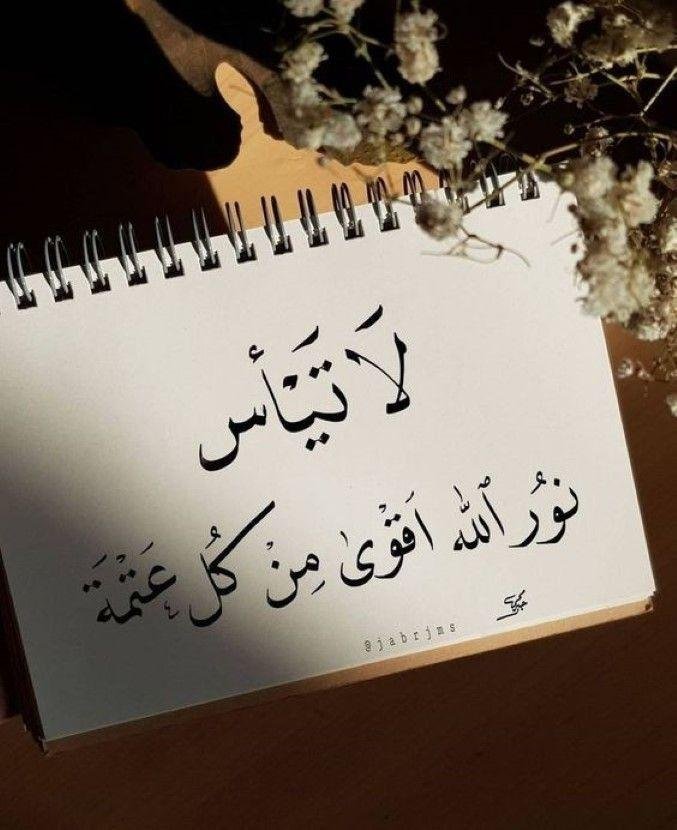 لَا تَيْأس
نوُر ٱللّٰه اَقْوىٰ مِنْ كُل عَتْمَةَ
@jabrjms